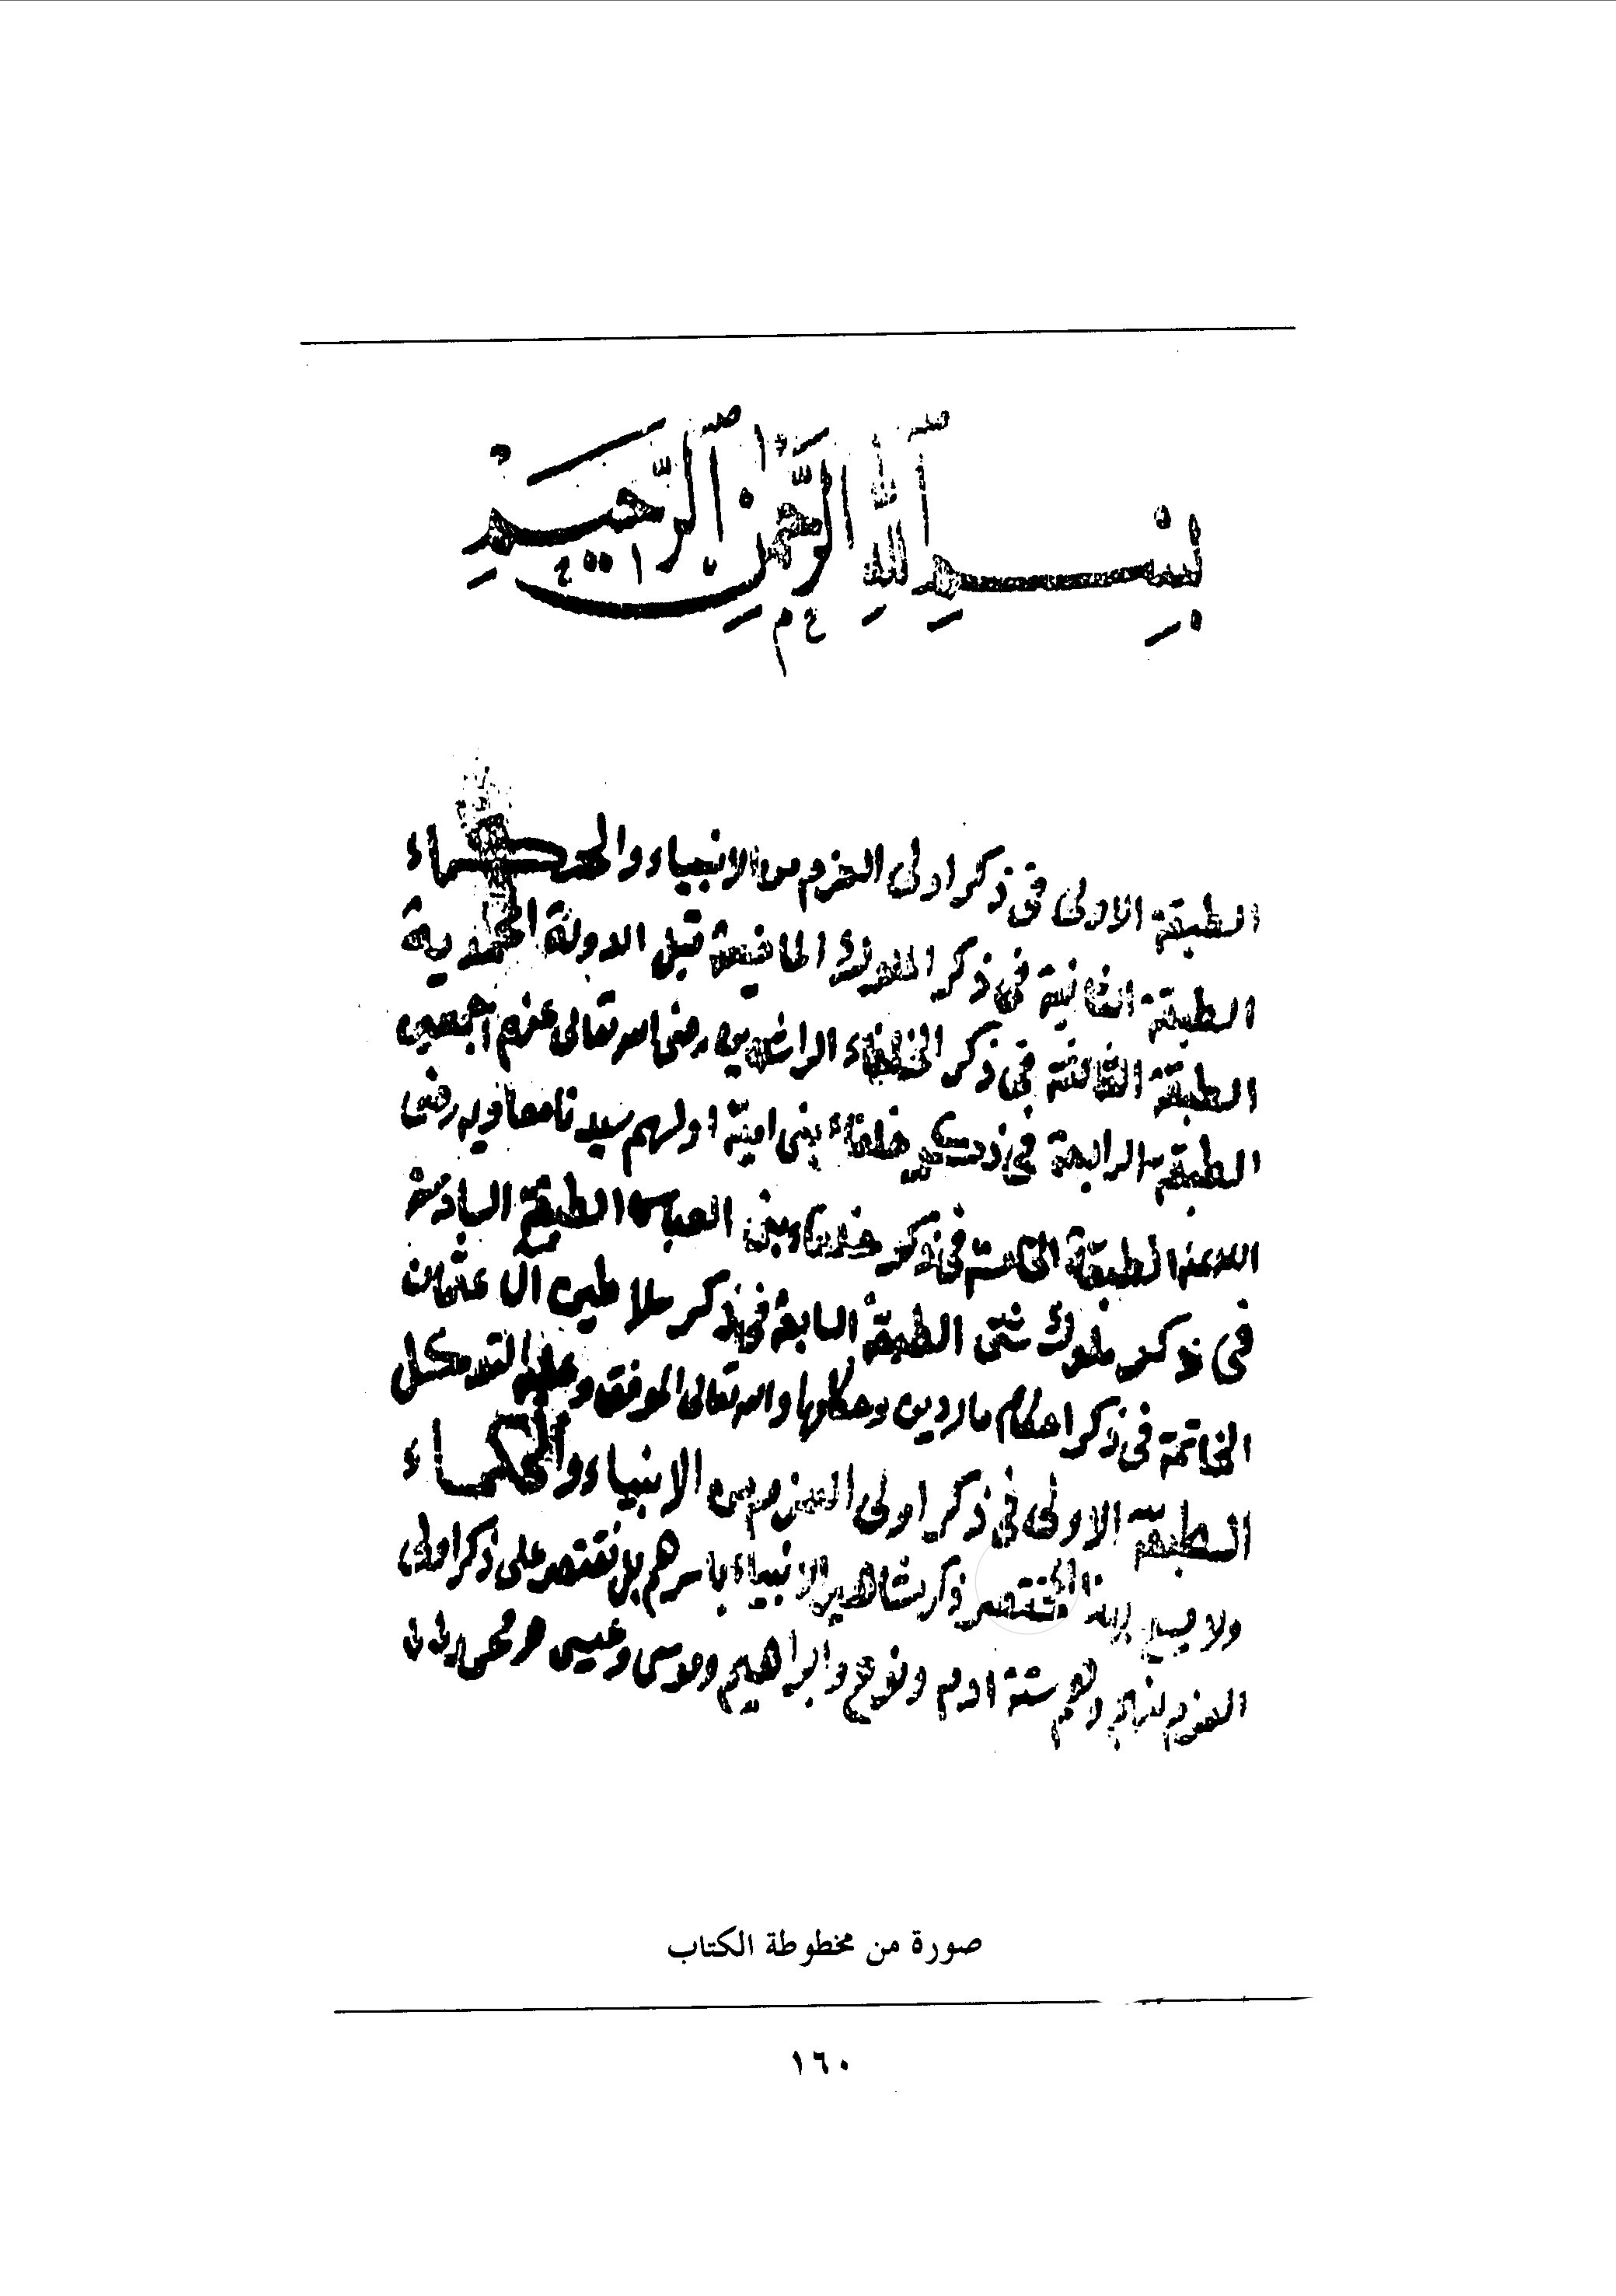 بِسْمِ اللهِ الرَّحْمٰنِ الرَّحِيمِ
الطبقة الاولى فى ذكر اولى العزم من الانبياء والحكماء
الطبقة الثانية فى ذكر الملوك الماضية قبل الدولة المحمدية
الطبقة الثالثة فى ذكر الخلفاء الراشدين رضى الله تعالى عنهم اجمعين
الطبقة الرابعة فى ذكر خلفاء بنى امية اولهم سيدنا معاويه رضى
الله عنه الطبقة الخامسة فى ذكر خلفاء بنى العباس الطبقة السادسة
فى ذكر ملوك شتى الطبقة السابعة فى ذكر سلاطين آل عثمان
الخاتمة فى ذكر احكام ماردين وحكامها والله تعالى الموفق وعليه التوكل
الطبقة الاولى فى ذكر اولى العزم من الانبياء والحكماء
ولا يسع هذا المختصر ذكر مشاهير الانبياء باسرهم بل نقتصر على ذكر اولى
العزم منهم وهم ستة آدم ونوح وابراهيم وموسى وعيسى
صورة من مخطوطة الكتاب
١٦٠